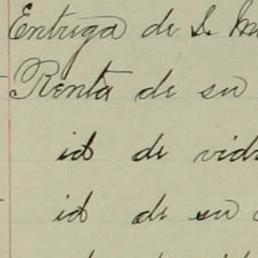 Entrega de S. M
Renta de su
id de vid
id de su